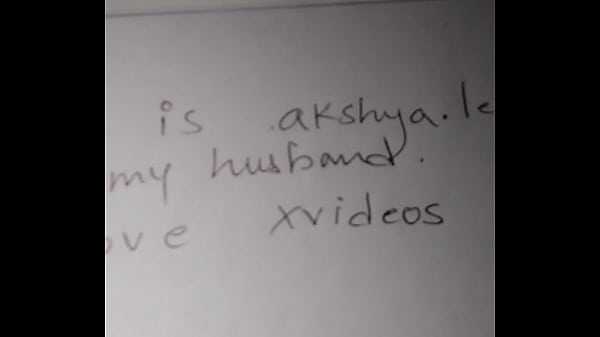 is akshya. le
my husband.
ove xvideos